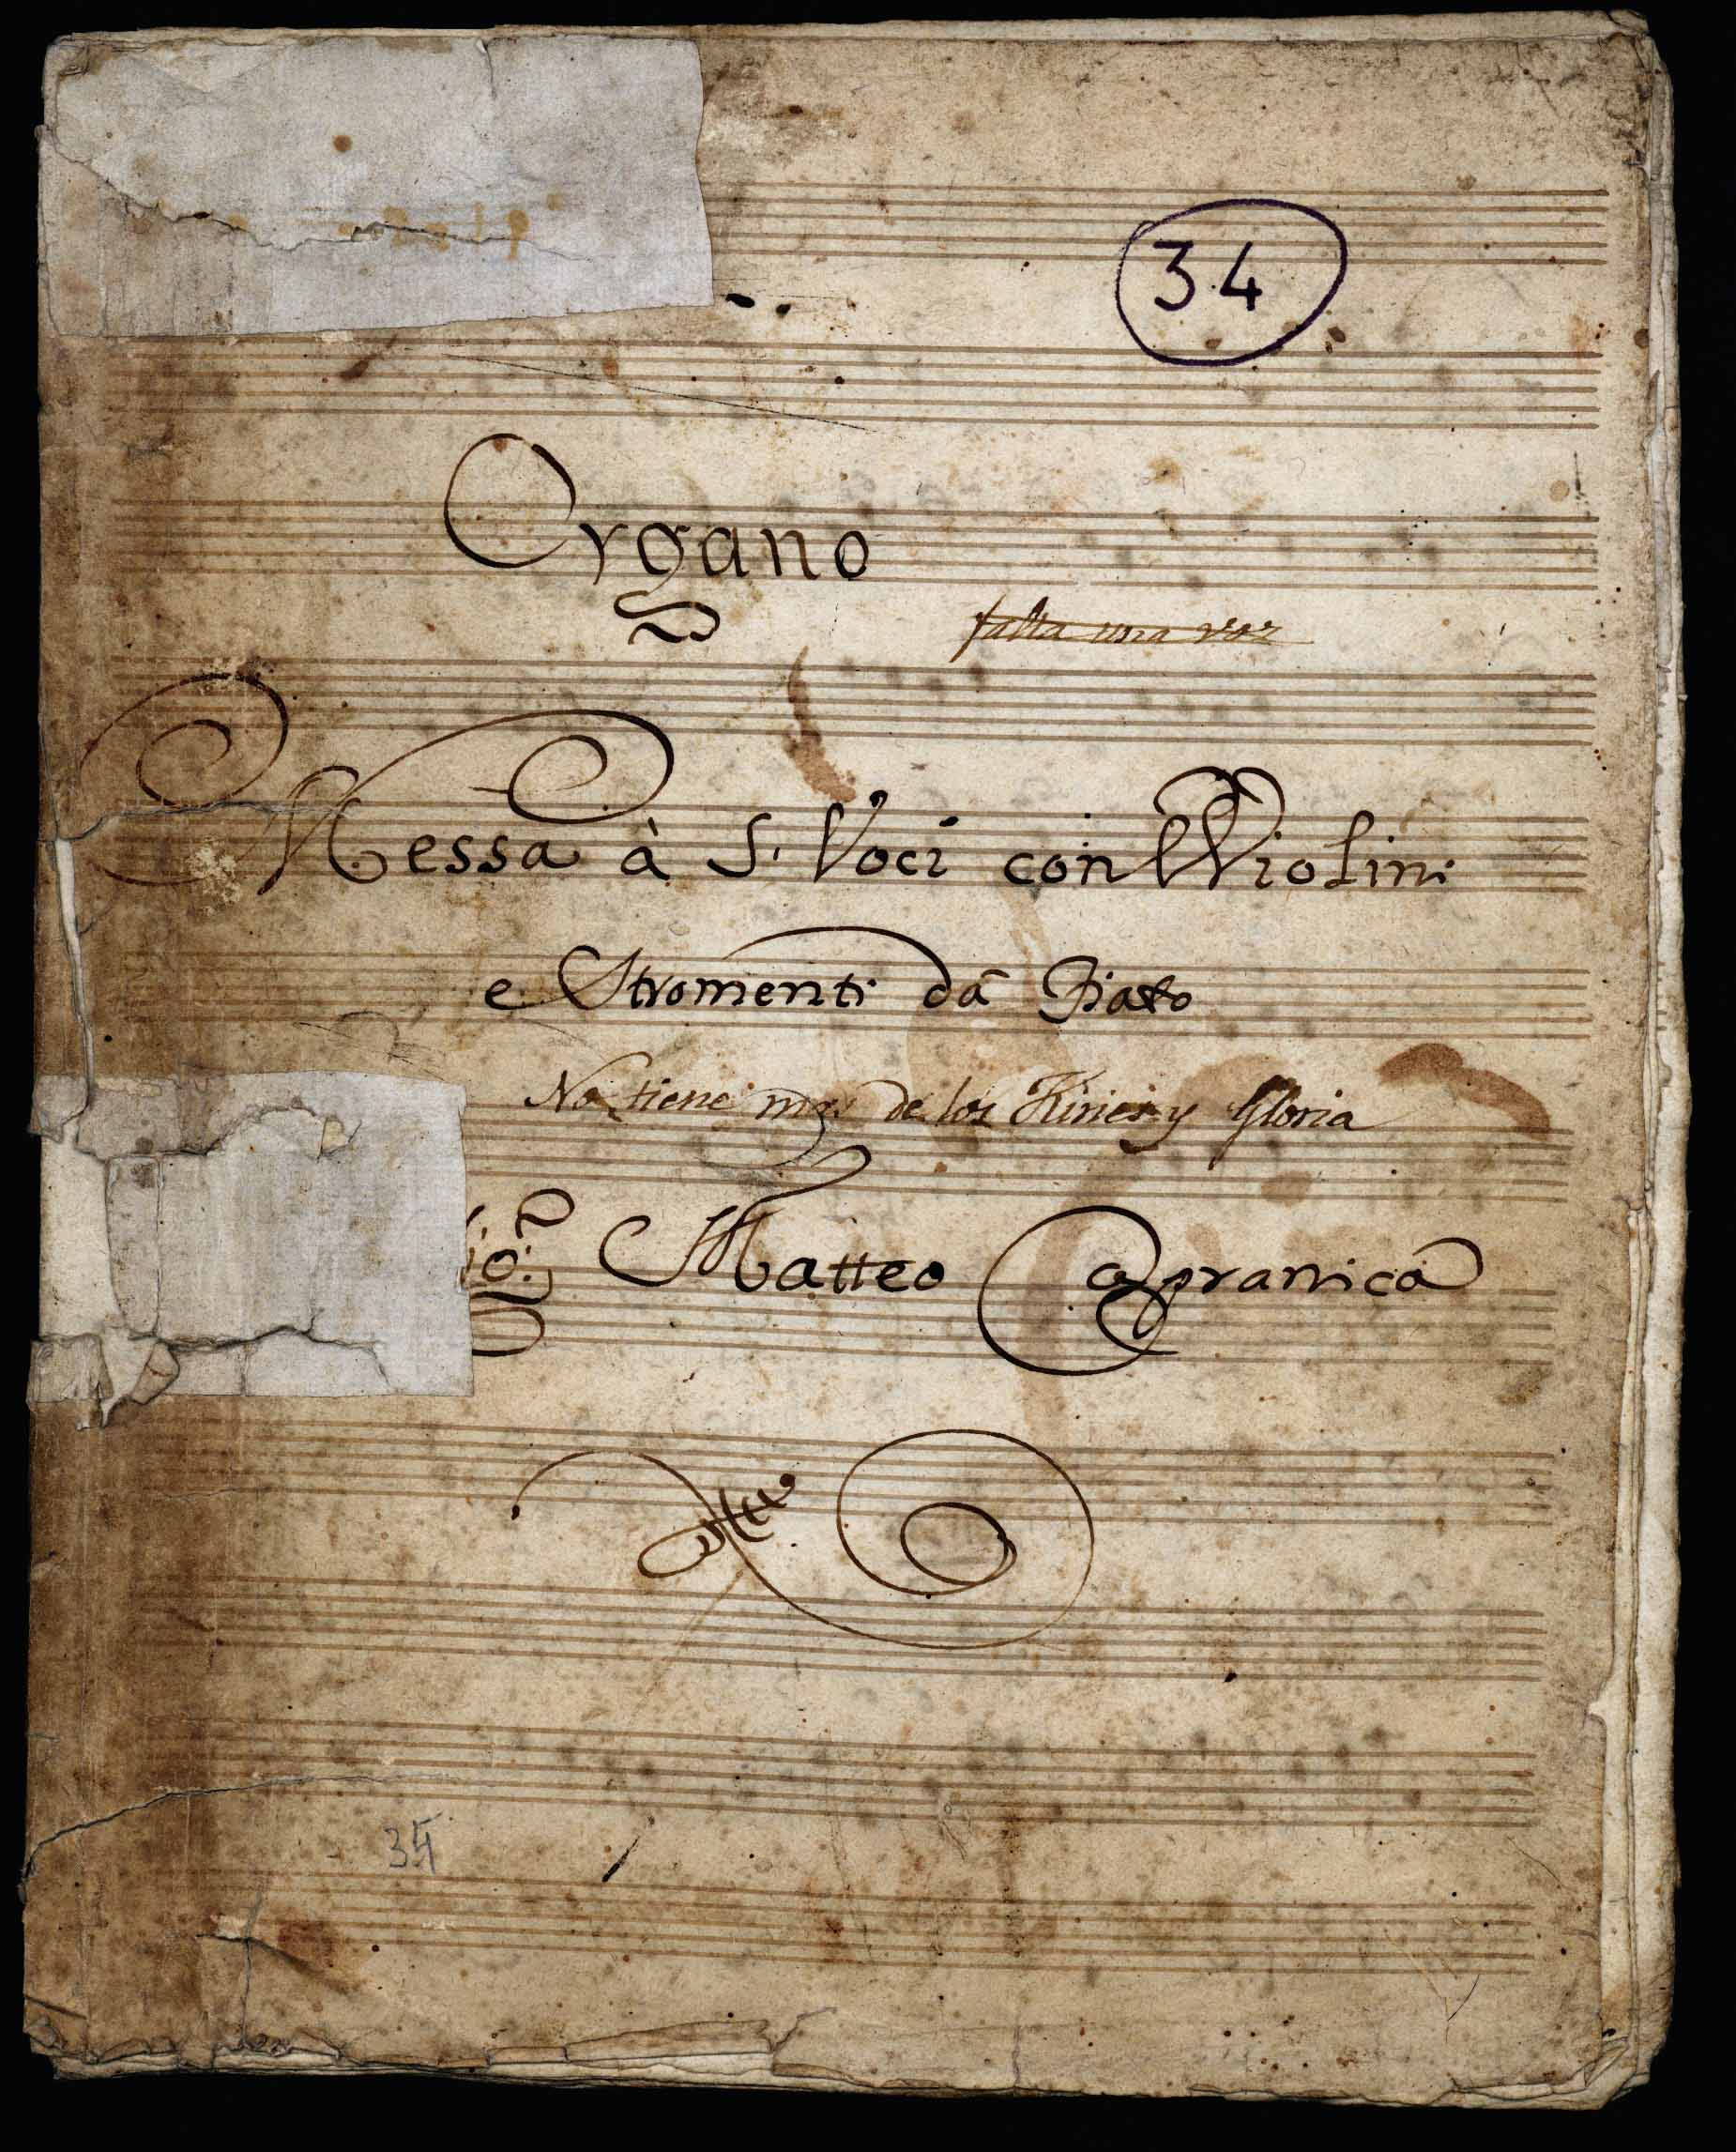 34
Organo
falta una voz
Messa à 5. Voci con VViolini
e Stromenti da Fiato
No tiene mas de los Kiries y Gloria
Matteo Capranica
34